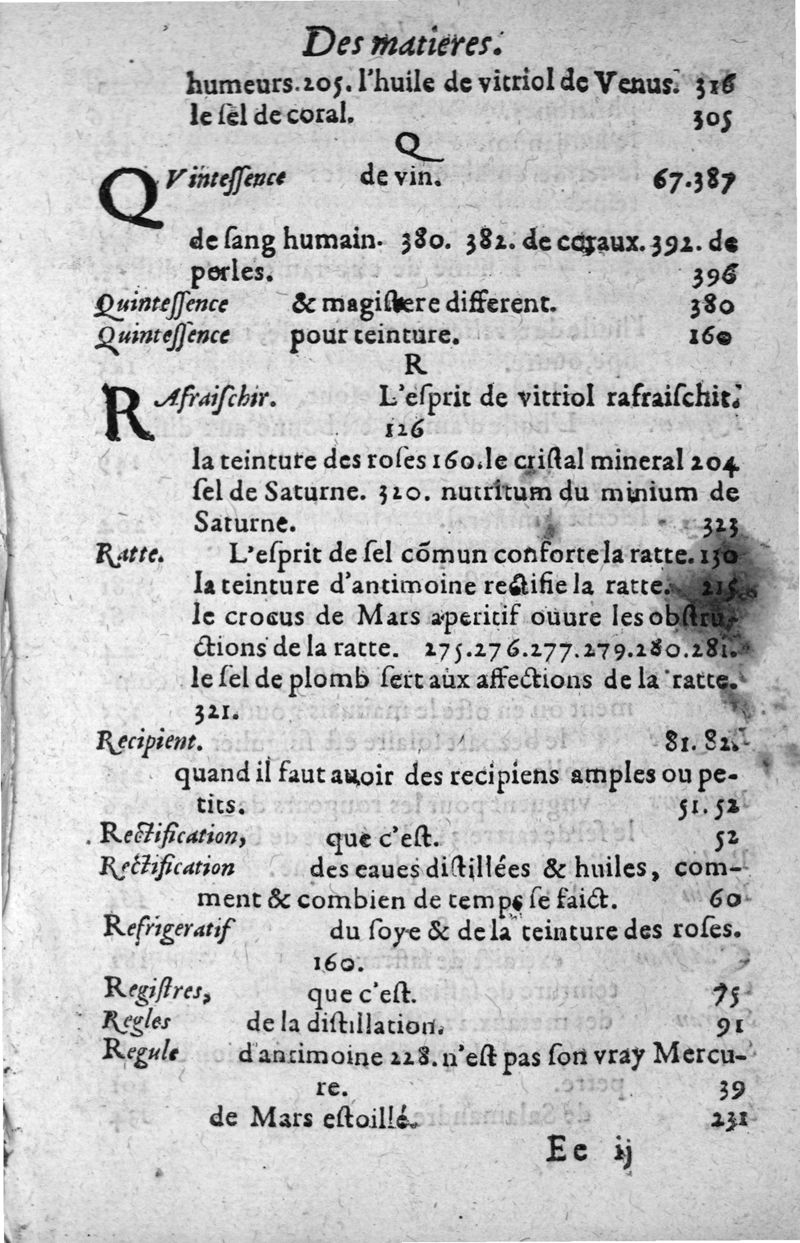 Des matieres.
humeurs.205. l'huile de vitriol de Venus. 316
le ſel de coral. 305
Q
QVinteſſence de vin. 67.387
de ſang humain. 380. 382. de coraux. 392. de
perles. 396
Quinteſſence & magiſtere different. 380
Quinteſſence pour teinture. 160
R
RAfraiſchir. L'eſprit de vitriol rafraiſchit.
126
la teinture des roſes 160. le criſtal mineral 204
ſel de Saturne. 320. nutritum du minium de
Saturne. 323
Ratte. L'eſprit de ſel cõmun conforte la ratte. 130
la teinture d'antimoine rectifie la ratte. 215
le crocus de Mars aperitif ouure les obſtru-
ctions de la ratte. 275.276.277.279.280.281.
le ſel de plomb ſert aux affections de la ratte.
321.
Recipient. 81. 82.
quand il faut auoir des recipiens amples ou pe-
tits. 51.52
Rectification, que c'eſt. 52
Rectification des eaues diſtillées & huiles, com-
ment & combien de temps ſe faict. 60
Refrigeratif du foye & de la teinture des roſes.
160.
Regiſtres, que c'eſt. 75
Regles de la diſtillation. 91
Regule d'antimoine 228. n'eſt pas ſon vray Mercu-
re. 39
de Mars eſtoillé. 231
Ee ij